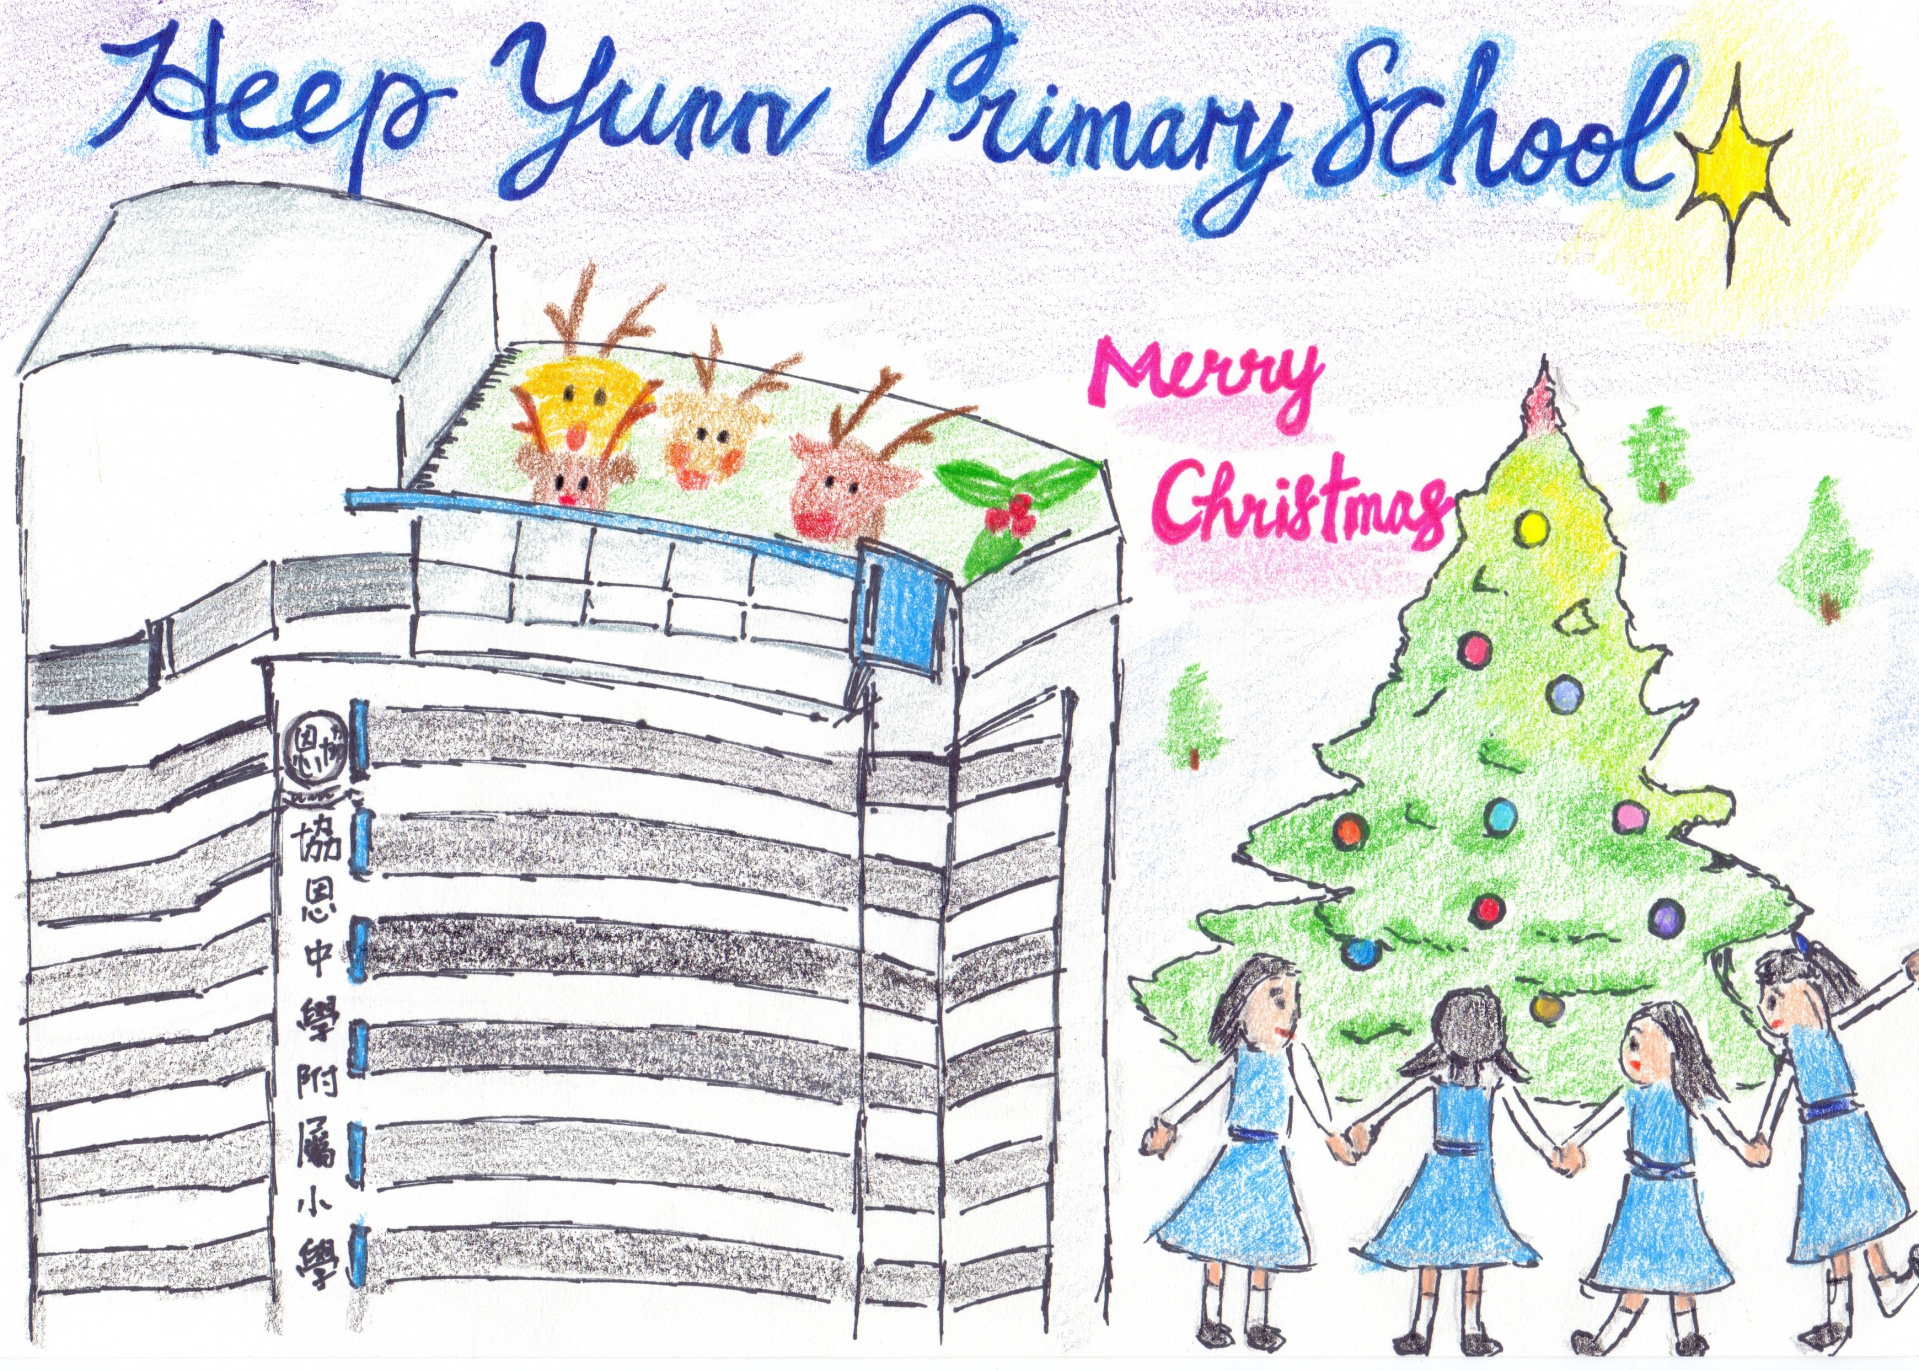 Heep Yunn Primary School
Merry
Christmas
協恩中學附屬小學